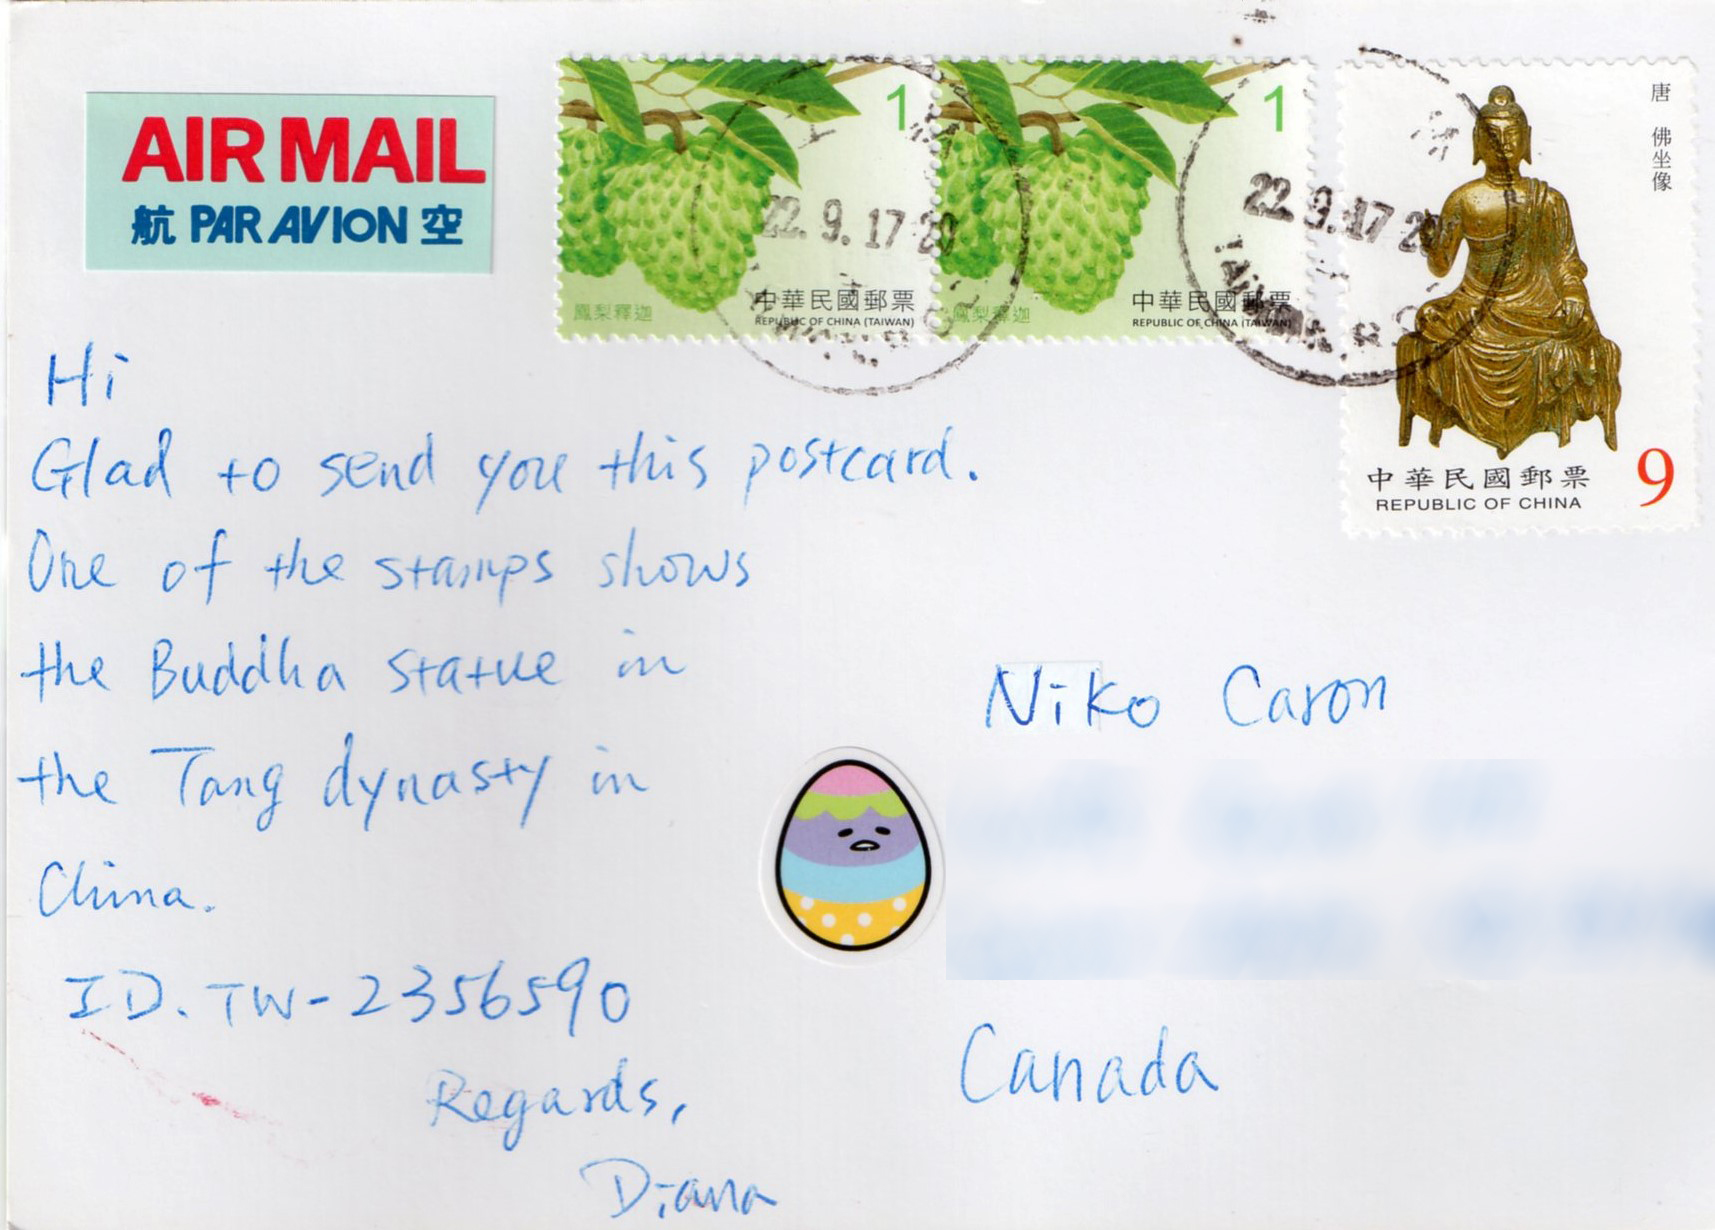 AIR MAIL
航 PAR AVION 空
1
鳳梨釋迦
中華民國郵票
REPUBLIC OF CHINA (TAIWAN)
22.9.17 20
1
鳳梨釋迦
中華民國郵票
REPUBLIC OF CHINA (TAIWAN)
22.9.17 20
唐 佛坐像
中華民國郵票
REPUBLIC OF CHINA
9
Hi
Glad to send you this postcard.
One of the stamps shows
the Buddha statue in
the Tang dynasty in
China.
ID. TW-2356590
Regards,
Diana
Niko Caron
Canada